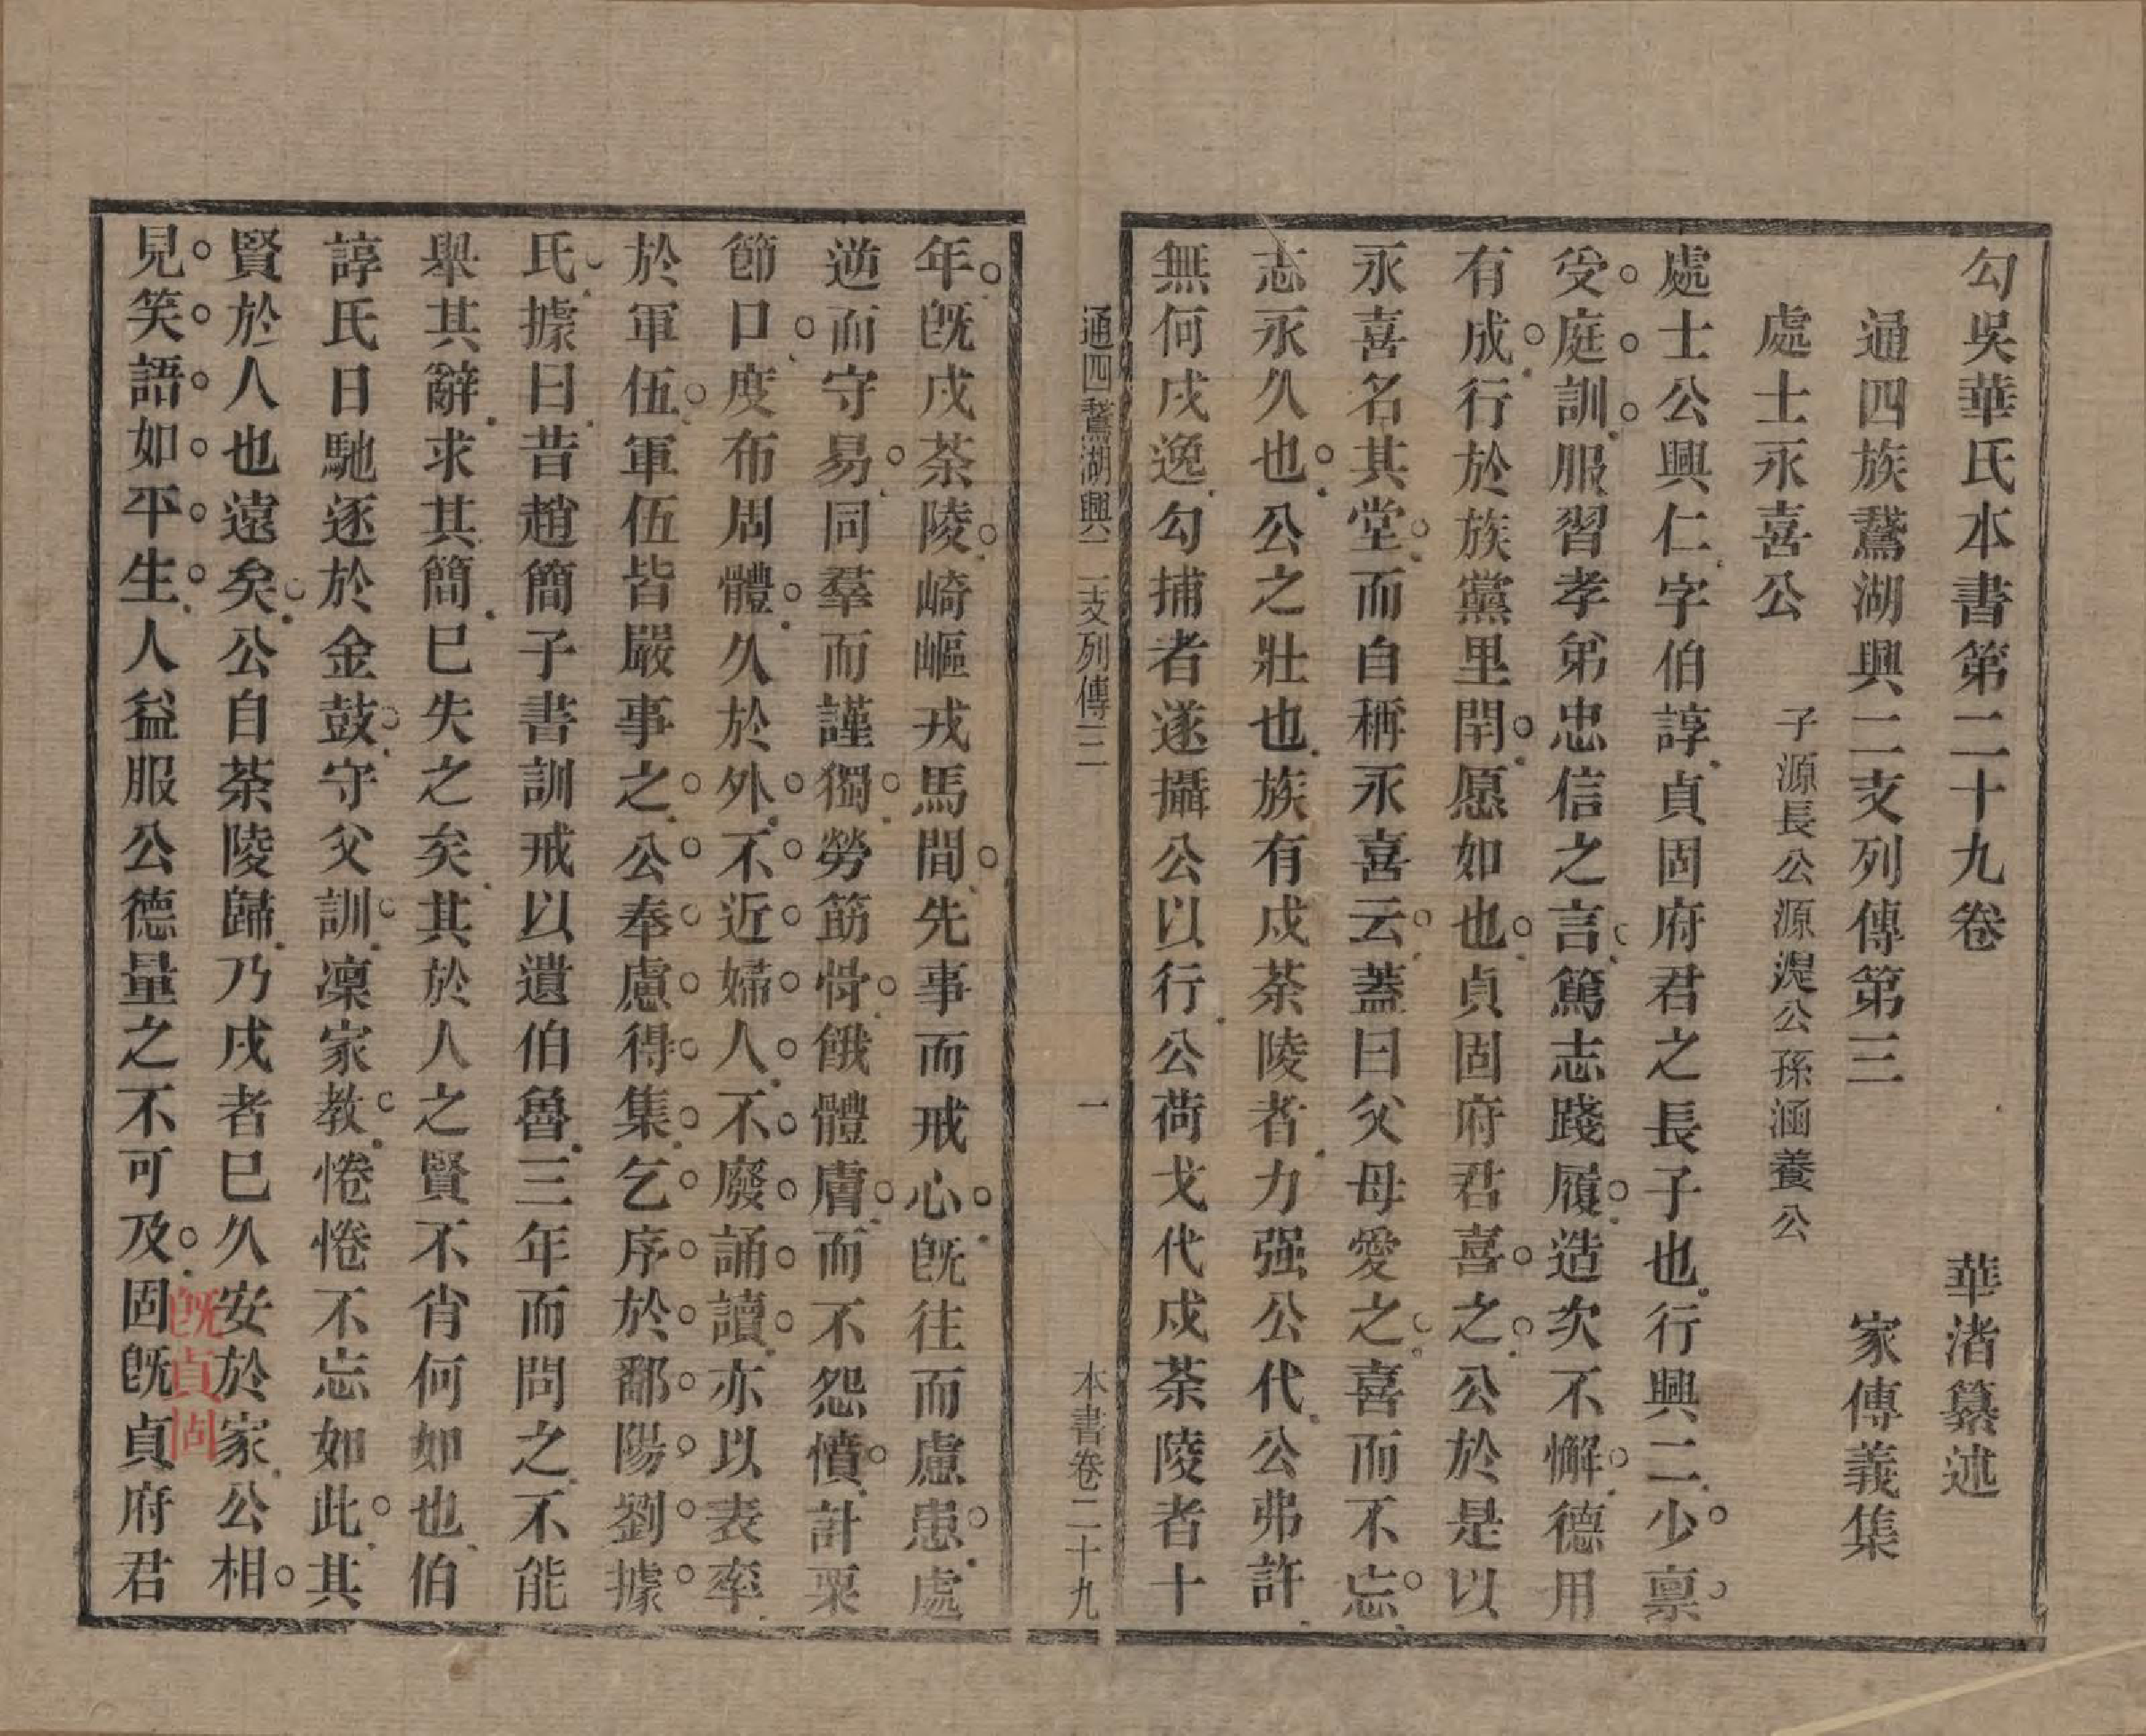 勾吳華氏本書第二十九卷　華渚纂述
通四族鵞湖興二支列傳第三　家傳義集
處士永喜公　子源長公源混公孫涵養公
處士公興仁字伯諄貞固府君之長子也行興二少稟
受庭訓服習孝弟忠信之言篤志踐履造次不懈德用
有成行於族黨里閈愿如也貞固府君喜之公於是以
永喜名其堂而自稱永喜云蓋曰父母愛之喜而不忘
志永久也公之壯也族有戍茶陵者力强公代公弗許
無何戍逸勾捕者遂攝公以行公荷戈代戍茶陵者十
通四鵞湖興二支列傳三　一　本書卷二十九
年旣戍茶陵崎嶇戎馬間先事而戒心旣往而慮患處
逆而守易同羣而謹獨勞筋骨餓體膚而不怨憤計粟
節口度布周體久於外不近婦人不廢誦讀亦以表率
於軍伍軍伍皆嚴事之公奉慮得集乞序於鄱陽劉據
氏據曰昔趙簡子書訓戒以遺伯魯三年而問之不能
舉其辭求其簡已失之矣其於人之賢不肖何如也伯
諄氏日馳逐於金鼓守父訓凜家教惓惓不忘如此其
賢於人也遠矣公自茶陵歸乃戍者已久安於家公相
見笑語如平生人益服公德量之不可及固旣貞府君
旣貞固